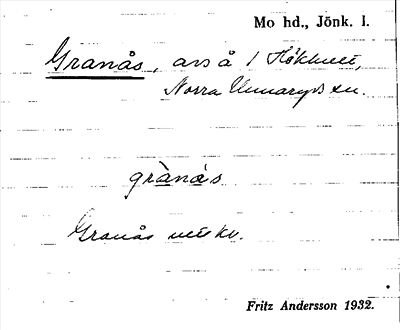 Mo hd., Jönk. l.
Granås, avs å 1 Hökhult,
Norra Unnaryds sn.
gràná's
Granås
Fritz Andersson 1932.